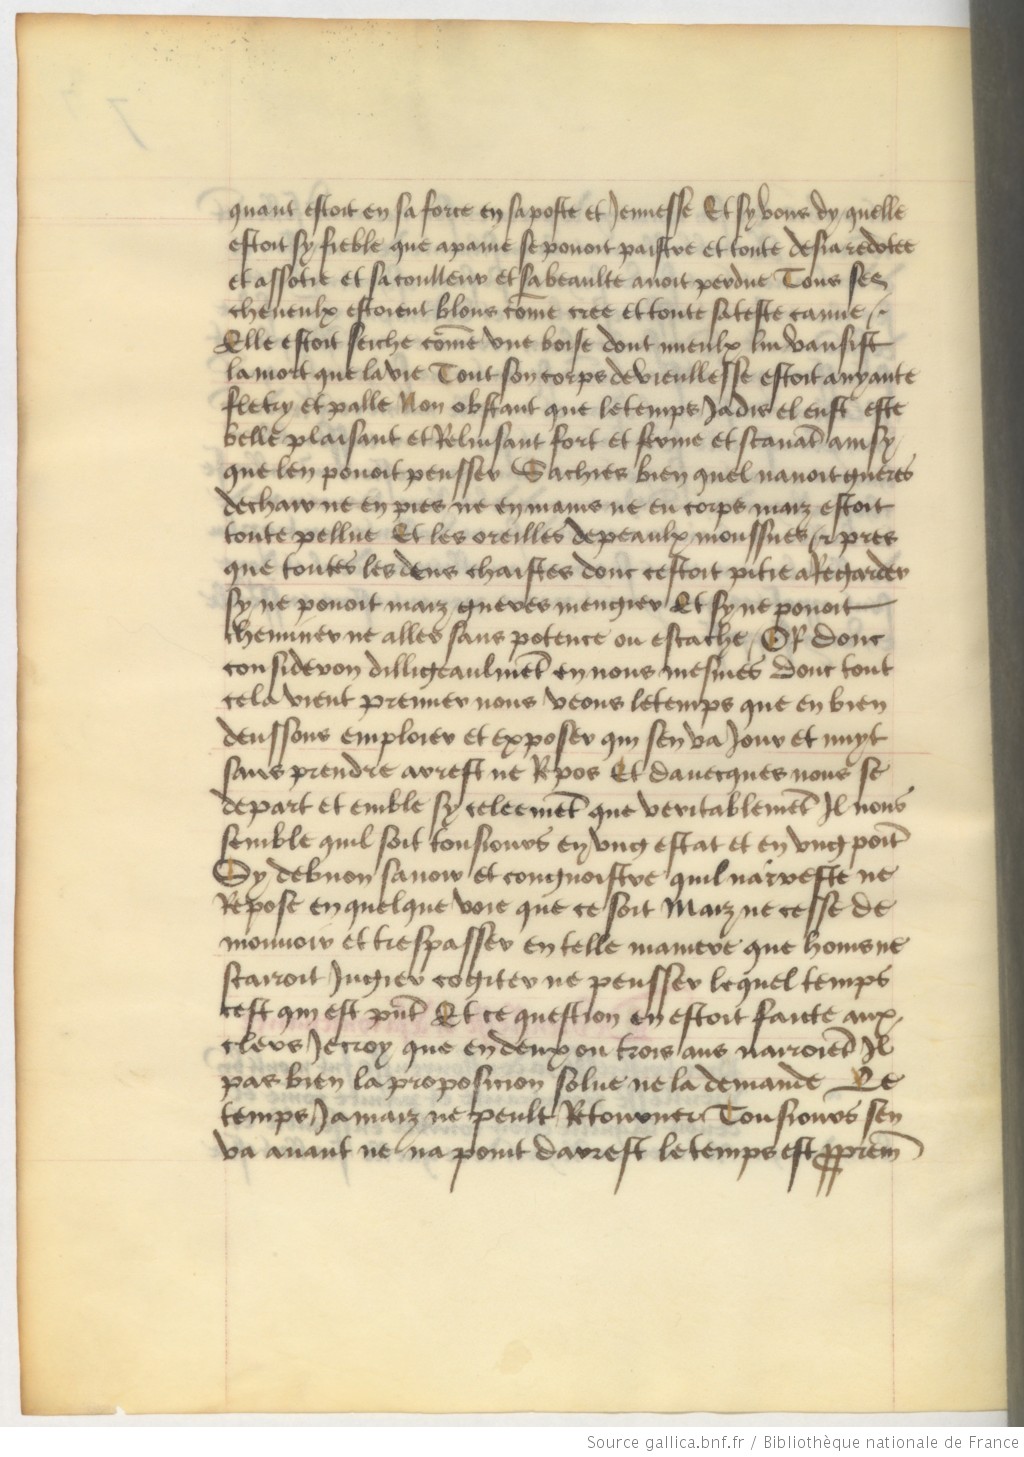 quant estoit en sa force en sa poste et Jennesse Et sy vous dy quelle
estoit sy fieble que apaine se pouoit paistre et toute desia redotee
et assotie et sa coulleur et sa beaulte auoit perdue Tous ses
cheueulx estoient blons cõme cree et toute sa teste canue
Elle estoit seiche cõme vne boise dont mieulx lui vausist
la mort que la vie Tout son corps de vieullesse estoit anyante
fletry et palle Non obstant que le temps Jadis el eust este
belle plaisant et Reluisant fort et ferme et scauãt ainsy
que len pouoit pensser Sachies bien quel nauoit gueres
de chair ne en pies ne en mains ne en corps maiz estoit
toute pellue Et les oreilles de peaulx moussues pres
que toutes les dens chaistes donc cestoit pitie a Regarder
sy ne pouoit maiz gueres mengier Et sy ne pouoit
cheminer ne alles sans potence ou estache Or donc
consideron dilligeaulmẽt en nous mesmes donc tout
cela vient premier nous veons le temps que en bien
deussons emploier et exposer qui sen va Jour et nuyt
sans prendre arrest ne Repos Et dauecques nous se
depart et emble sy celeemẽt que veritablemẽt Il nous
semble quil soit tousiours en vng estat et en vng poĩt
Sy debuon sauoir et congnoistre quil narreste ne
Repose en quelque voie que ce soit Maiz ne cesse de
mouuoir et trespasser en telle maniere que homs ne
scairoit Jugier cogiter ne pensser lequel temps
cest qui est pñt Et ce question en estoit faicte aux
clers Je croy que en deux ou trois ans nairoiẽt Il
pas bien la proposicion solue ne la demande Le
temps Ja maiz ne peult Retourner Tousiours sen
va auant ne na point darrest le temps est ꝓprem̃
Source gallica.bnf.fr / Bibliothèque nationale de France